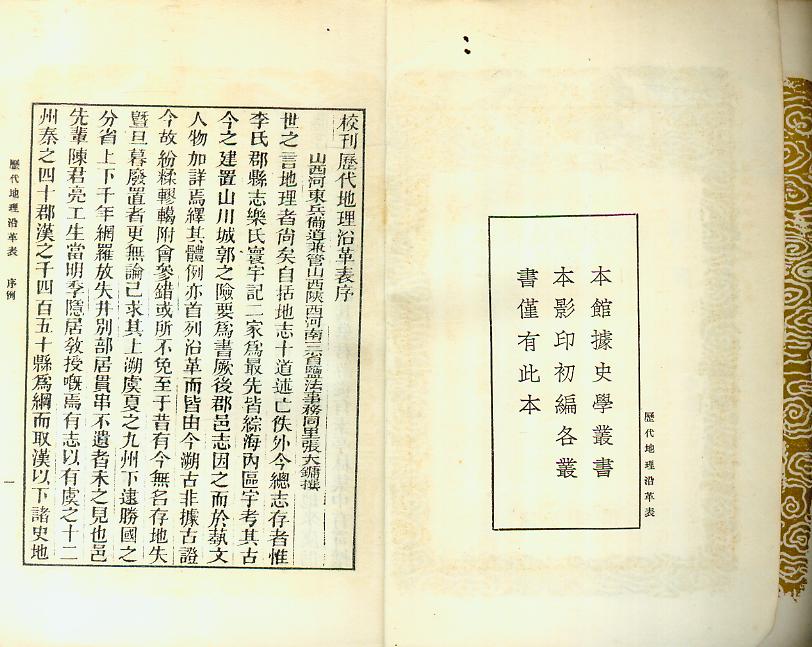 本館據史學叢書
本影印初編各叢
書僅有此本
歷代地理沿革表
校刊歷代地理沿革表序
山西河東兵備道兼管山西陝西河南三省鹽法事務同里張大鏞撰
世之言地理者尚矣自括地志十道述亡佚外今總志存者惟
李氏郡縣志樂氏寰宇記二家爲最先皆綜海內區宇考其古
今之建置山川城郭之險要爲書厥後郡邑志因之而於藝文
人物加詳焉繹其體例亦首列沿革而皆由今溯古非據古證
今故紛糅轇轕附會參錯或所不免至于昔有今無名存地失
曁旦暮廢置者更無論已求其上溯虞夏之九州下逮勝國之
分省上下千年網羅放失井別部居貫串不遺者未之見也邑
先輩陳君亮工生當明季隱居敎授嘅焉有志以有虞之十二
州秦之四十郡漢之千四百五十縣爲綱而取漢以下諸史地
歷代地理沿革表 序例
一